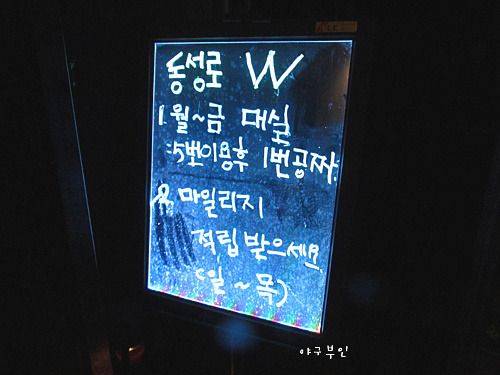 동성로 W
1. 월~금 대실
:5번이용후 1번공짜
2. 마일리지
적립 받으세요
(일~목)
야구부인